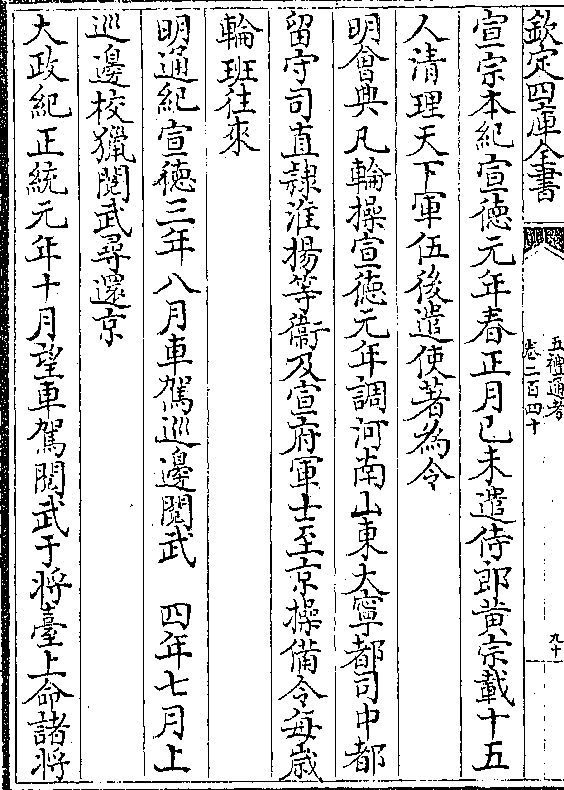 欽定四庫全書
五禮通考
卷二百四十
九十
宣宗本紀宣徳元年春正月己未遣侍郎黄宗載十五
人清理天下軍伍後遣使著為令
明會典凡輪操宣徳元年調河南山東大寧都司中都
留守司直隷淮揚等衞及宣府軍士至京操備令每歳
輪班往來
明通紀宣徳三年八月車駕巡邊閲武　四年七月上
巡邊校獵閲武尋還京
大政紀正統元年十月望車駕閲武于将臺上命諸将